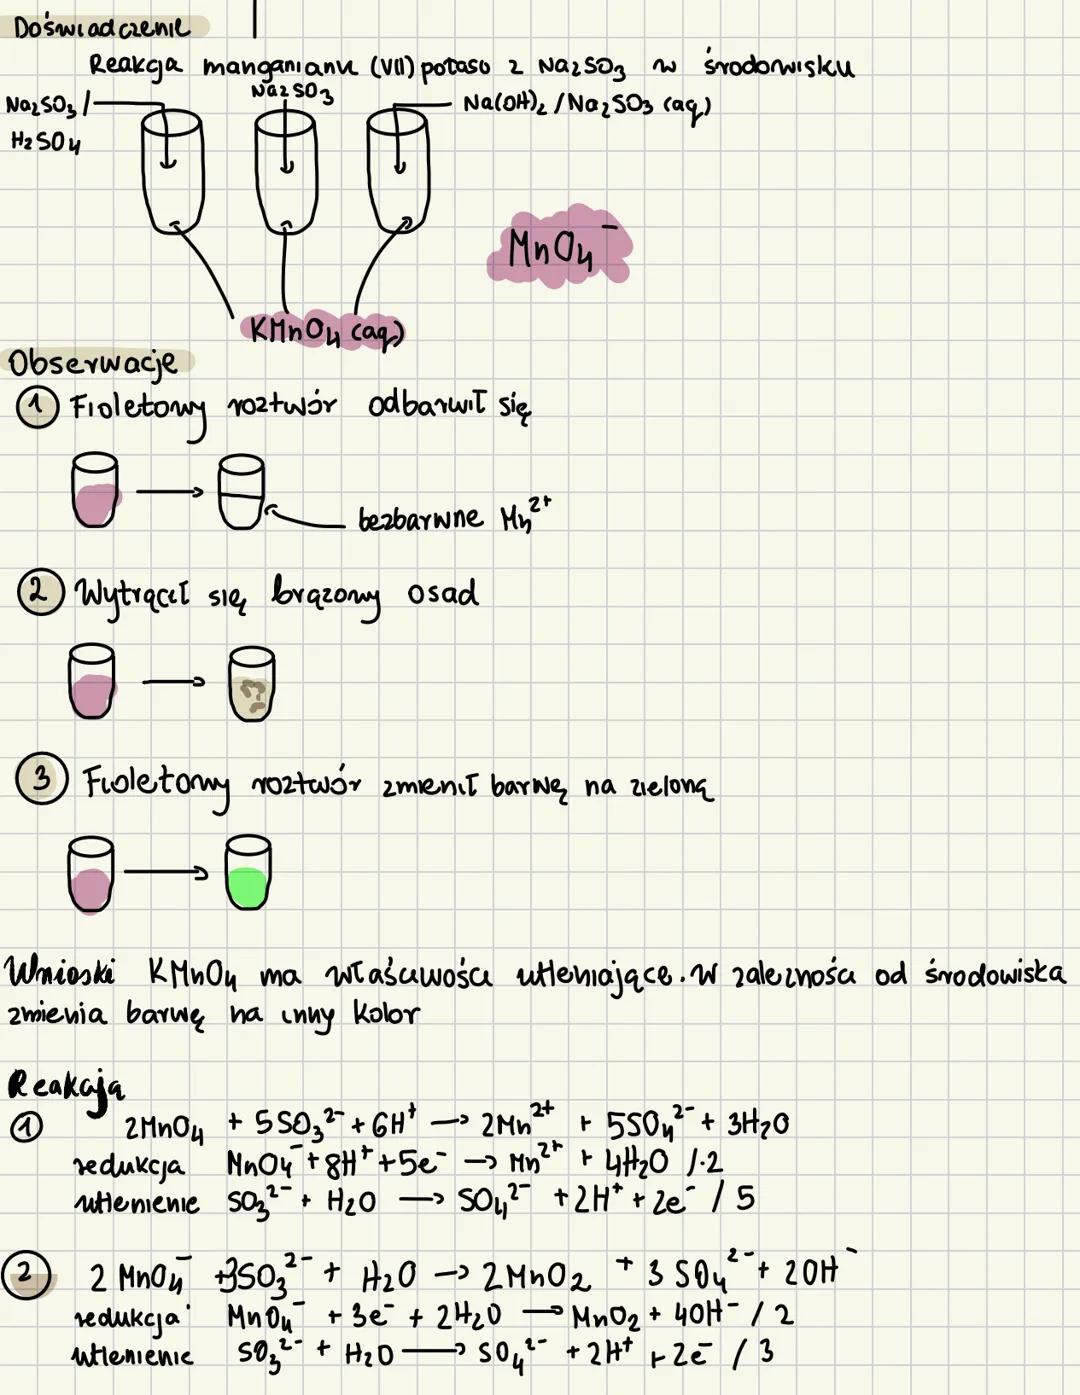 Doświadczenie
Reakcja manganianu (VII) potasu z Na₂SO₃ w środowisku
Na₂SO₃/
H₂SO₄
Na₂SO₃
Na(OH)₂/Na₂SO₃ (aq)
MnO₄⁻
KMnO₄ (aq)
Obserwacje
① Fioletowy roztwór odbarwił się
bezbarwne Mn²⁺
② Wytrącił się brązowy osad
③ Fioletowy roztwór zmienił barwę na zieloną
Wnioski KMnO₄ ma właściwości utleniające. W zależności od środowiska
zmienia barwę na inny kolor
Reakcja
① 2MnO₄ + 5SO₃²⁻ + 6H⁺ → 2Mn²⁺ + 5SO₄²⁻ + 3H₂O
redukcja MnO₄⁻ + 8H⁺ + 5e⁻ → Mn²⁺ + 4H₂O /·2
utlenienie SO₃²⁻ + H₂O → SO₄²⁻ + 2H⁺ + 2e⁻ / 5
② 2MnO₄⁻ + 3SO₃²⁻ + H₂O → 2MnO₂ + 3SO₄²⁻ + 2OH⁻
redukcja MnO₄⁻ + 3e⁻ + 2H₂O → MnO₂ + 4OH⁻ / 2
utlenienie SO₃²⁻ + H₂O → SO₄²⁻ + 2H⁺ + 2e⁻ / 3